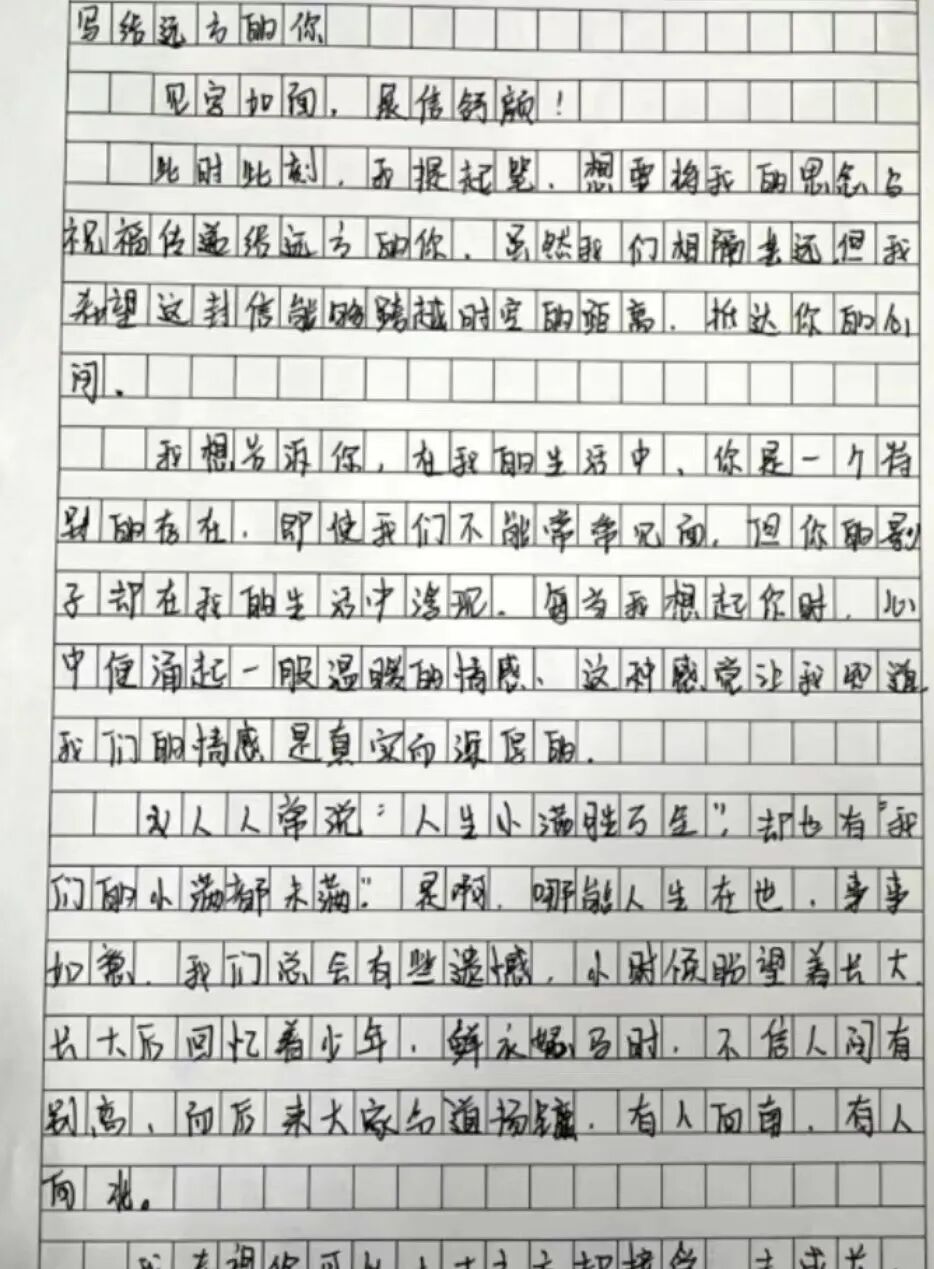 写给远方的你
见字如面，展信舒颜！
此时此刻，我提起笔，想要将我的思念与
祝福传递给远方的你，虽然我们相隔甚远但我
希望这封信能够跨越时空的距离，抵达你的心
间。
我想告诉你，在我的生活中，你是一个特
别的存在，即使我们不能常常见面，但你的影
子却在我的生活中浮现。每当我想起你时，心
中便涌起一股温暖的情感、这种感觉让我知道
我们的情感是真实而深厚的.
人人常说"人生小满胜万全",却也有"我
们的小满都未满".是啊,哪能人生在世,事事
如意.我们总会有些遗憾,小时候盼望着长大,
长大后回忆着少年,鲜衣怒马时,不信人间有
别离、而后来大家各道扬镳.有人向南、有人
向北。